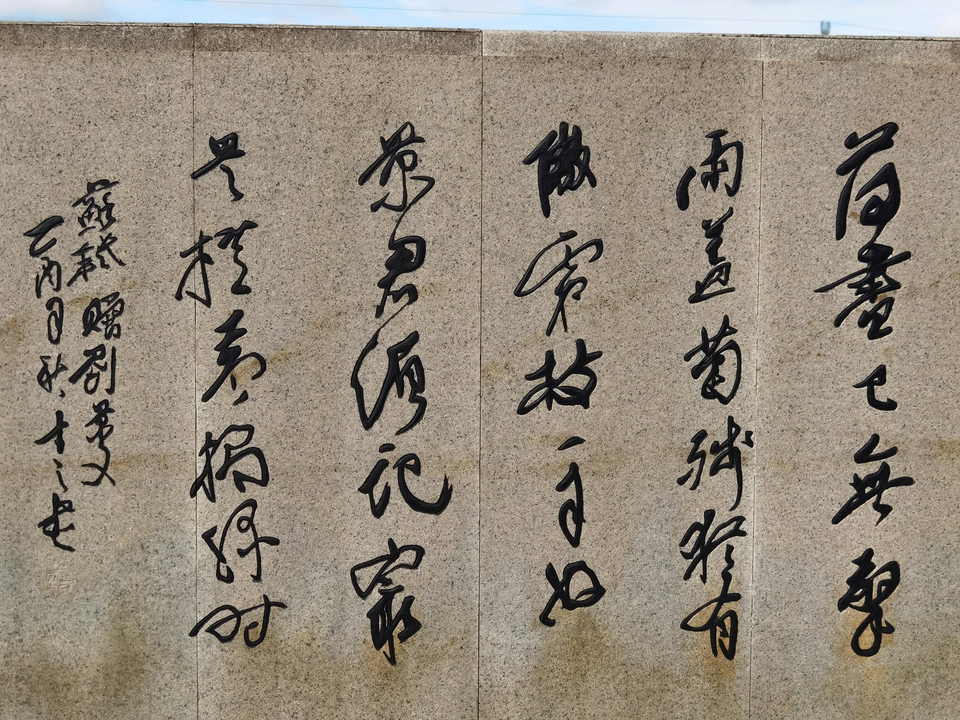 荷盡已無擎
雨蓋菊殘猶有
傲霜枝一年好
景君須記最
是橙黄橘緑时
蘇軾 贈劉景文
乙酉年秋